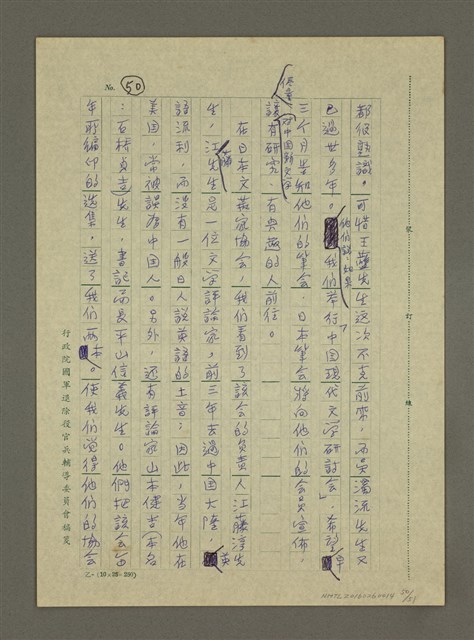 No. 50
都很熟識。可惜王藍先生這次不克前來,而吳濁流先生又
已過世多年。他們說,如果我們舉行「中国現代文学研討会」,希望早
三个月告知他們的筆会,日本筆会將向他們的会員宣佈,
儘量讓对中国新文学有研究、有興趣的人前往。
在日本文藝家協会,我們看到了該会的負責人江藤淳先
生,江藤先生是一位文学評論家,前三年去過中国大陸,英
語流利,而沒有一般日人說英語的土音;因此,當年他在
美国,常被誤為中国人。另外,還有評論家山本健吉(本名
:石橋貞吉)先生,書記局長平山信義先生。他們把該会去
年所編印的選集,送了我們兩本。使我們覚得他們的協会
裝 訂 線
行政院國軍退除役官兵輔導委員會稿箋
(10×25=250)
NMTL20160060414
50/51